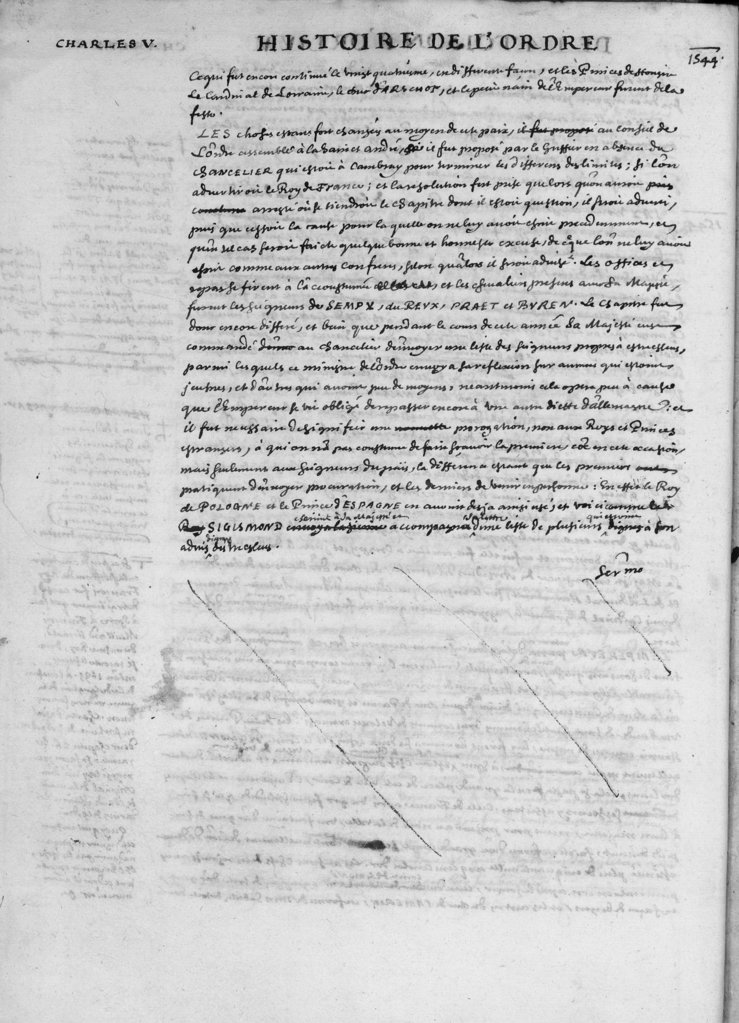 CHARLES V.
HISTOIRE DE L'ORDRE
1544.
Ce qui fut encor continué le vingt quatriesme, en differente façon, et les Princes de Hongrie
le Cardinal de Lorraine, le duc d'ARSCHOT, et le petit nain de l'Empereur furent de la
feste.
LES choses estans fort changées au moyen de cete paix, il fut proposé au conseil de
l'ordre assemblé à la saint André, il fut proposé par le Greffier en absence du
CHANCELIER qui estoit à Cambray pour terminer les differens des limites; si l'on
advertiroit le Roy de France; et la resolution fut prise que lors qu'on auroit pris
arresté où se tiendroit le chapitre dont il estoit question, il seroit adverti,
puis que cessoit la cause pour laquelle on ne luy avoit escrit precedemment, et
qu'en tel cas seroit faicte quelque bonne et honneste excuse, de ce que l'on ne luy avoit
escrit comme aux autres confreres, selon qu'alors il seroit advisé. Les offices et
repas se firent à la coustume, et les chevaliers presens avec sa Majesté,
furent les seigneurs de SEMPY, du REUX, PRAET et BUREN. Le chapitre fut
donc encore differé, et bien que pendant le cours de cete année sa Majesté eust
commandé au chancelier d'envoyer une liste des seigneurs propres à estre esleus,
parmi lesquels ce ministre de l'ordre envoya sa reflexion sur aucuns qui estoient
jeunes, et d'autres qui avoient peu de moyens, neantmoins cela opera peu à cause
que l'Empereur se vit obligé de repasser encor à une autre diette d'Allemagne: et
il fut necessaire de signifier une prorogation, non aux Roys et Princes
estrangers, à qui on n'a pas coustume de faire sçavoir la premiere, en cete occasion,
mais seulement aux seigneurs du païs, la difference estant que les premiers
pratiquent d'envoyer procuration, et les derniers de venir en personne: En effect le Roy
de POLOGNE et le Prince d'ESPAGNE en avoient desja ainsi usé; et voici comme le
Roy SIGISMOND escrivit à sa Majesté et accompagna sa lettre d'une liste de plusieurs qui estoient dignes à son
advis d'estre esleus.
Ser.mo